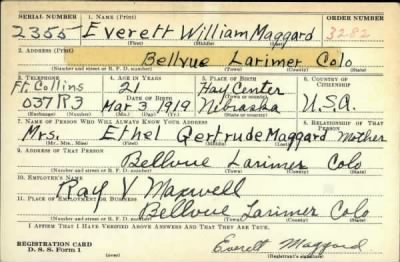 SERIAL NUMBER 1. NAME (Print) ORDER NUMBER
2355 Everett William Maggard 3282
(First) (Middle) (Last)
2. ADDRESS (Print)
Bellvue Larimer Colo
(Number and street or R. F. D. number) (Town) (County) (State)
3. TELEPHONE 4. AGE IN YEARS 5. PLACE OF BIRTH 6. COUNTRY OF CITIZENSHIP
Ft. Collins 21 Hay Center
DATE OF BIRTH (Town or county)
037R3 Mar 3 1919 Nebraska U.S.A.
(Exchange) (Number) (Mo.) (Day) (Yr.) (State or country)
7. NAME OF PERSON WHO WILL ALWAYS KNOW YOUR ADDRESS 8. RELATIONSHIP OF THAT PERSON
Mrs. Ethel Gertrude Maggard Mother
(Mr., Mrs., Miss) (First) (Middle) (Last)
9. ADDRESS OF THAT PERSON
Bellvue Larimer Colo
(Number and street or R. F. D. number) (Town) (County) (State)
10. EMPLOYER'S NAME
Ray V Maxwell
11. PLACE OF EMPLOYMENT OR BUSINESS
Bellvue Larimer Colo
(Number and street or R. F. D. number) (Town) (County) (State)
I AFFIRM THAT I HAVE VERIFIED ABOVE ANSWERS AND THAT THEY ARE TRUE.
REGISTRATION CARD
D. S. S. Form 1 Everett Maggard
(Registrant's signature)